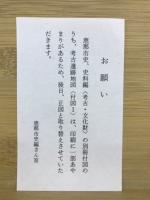 お願い
恵那市史、史料編（考古・文化財）の別冊付図の
うち、考古遺跡地図（付図１）は、印刷に一部あや
まりがあるため、後日、正図と取り替えさせていた
だきます。
恵那市史編さん室